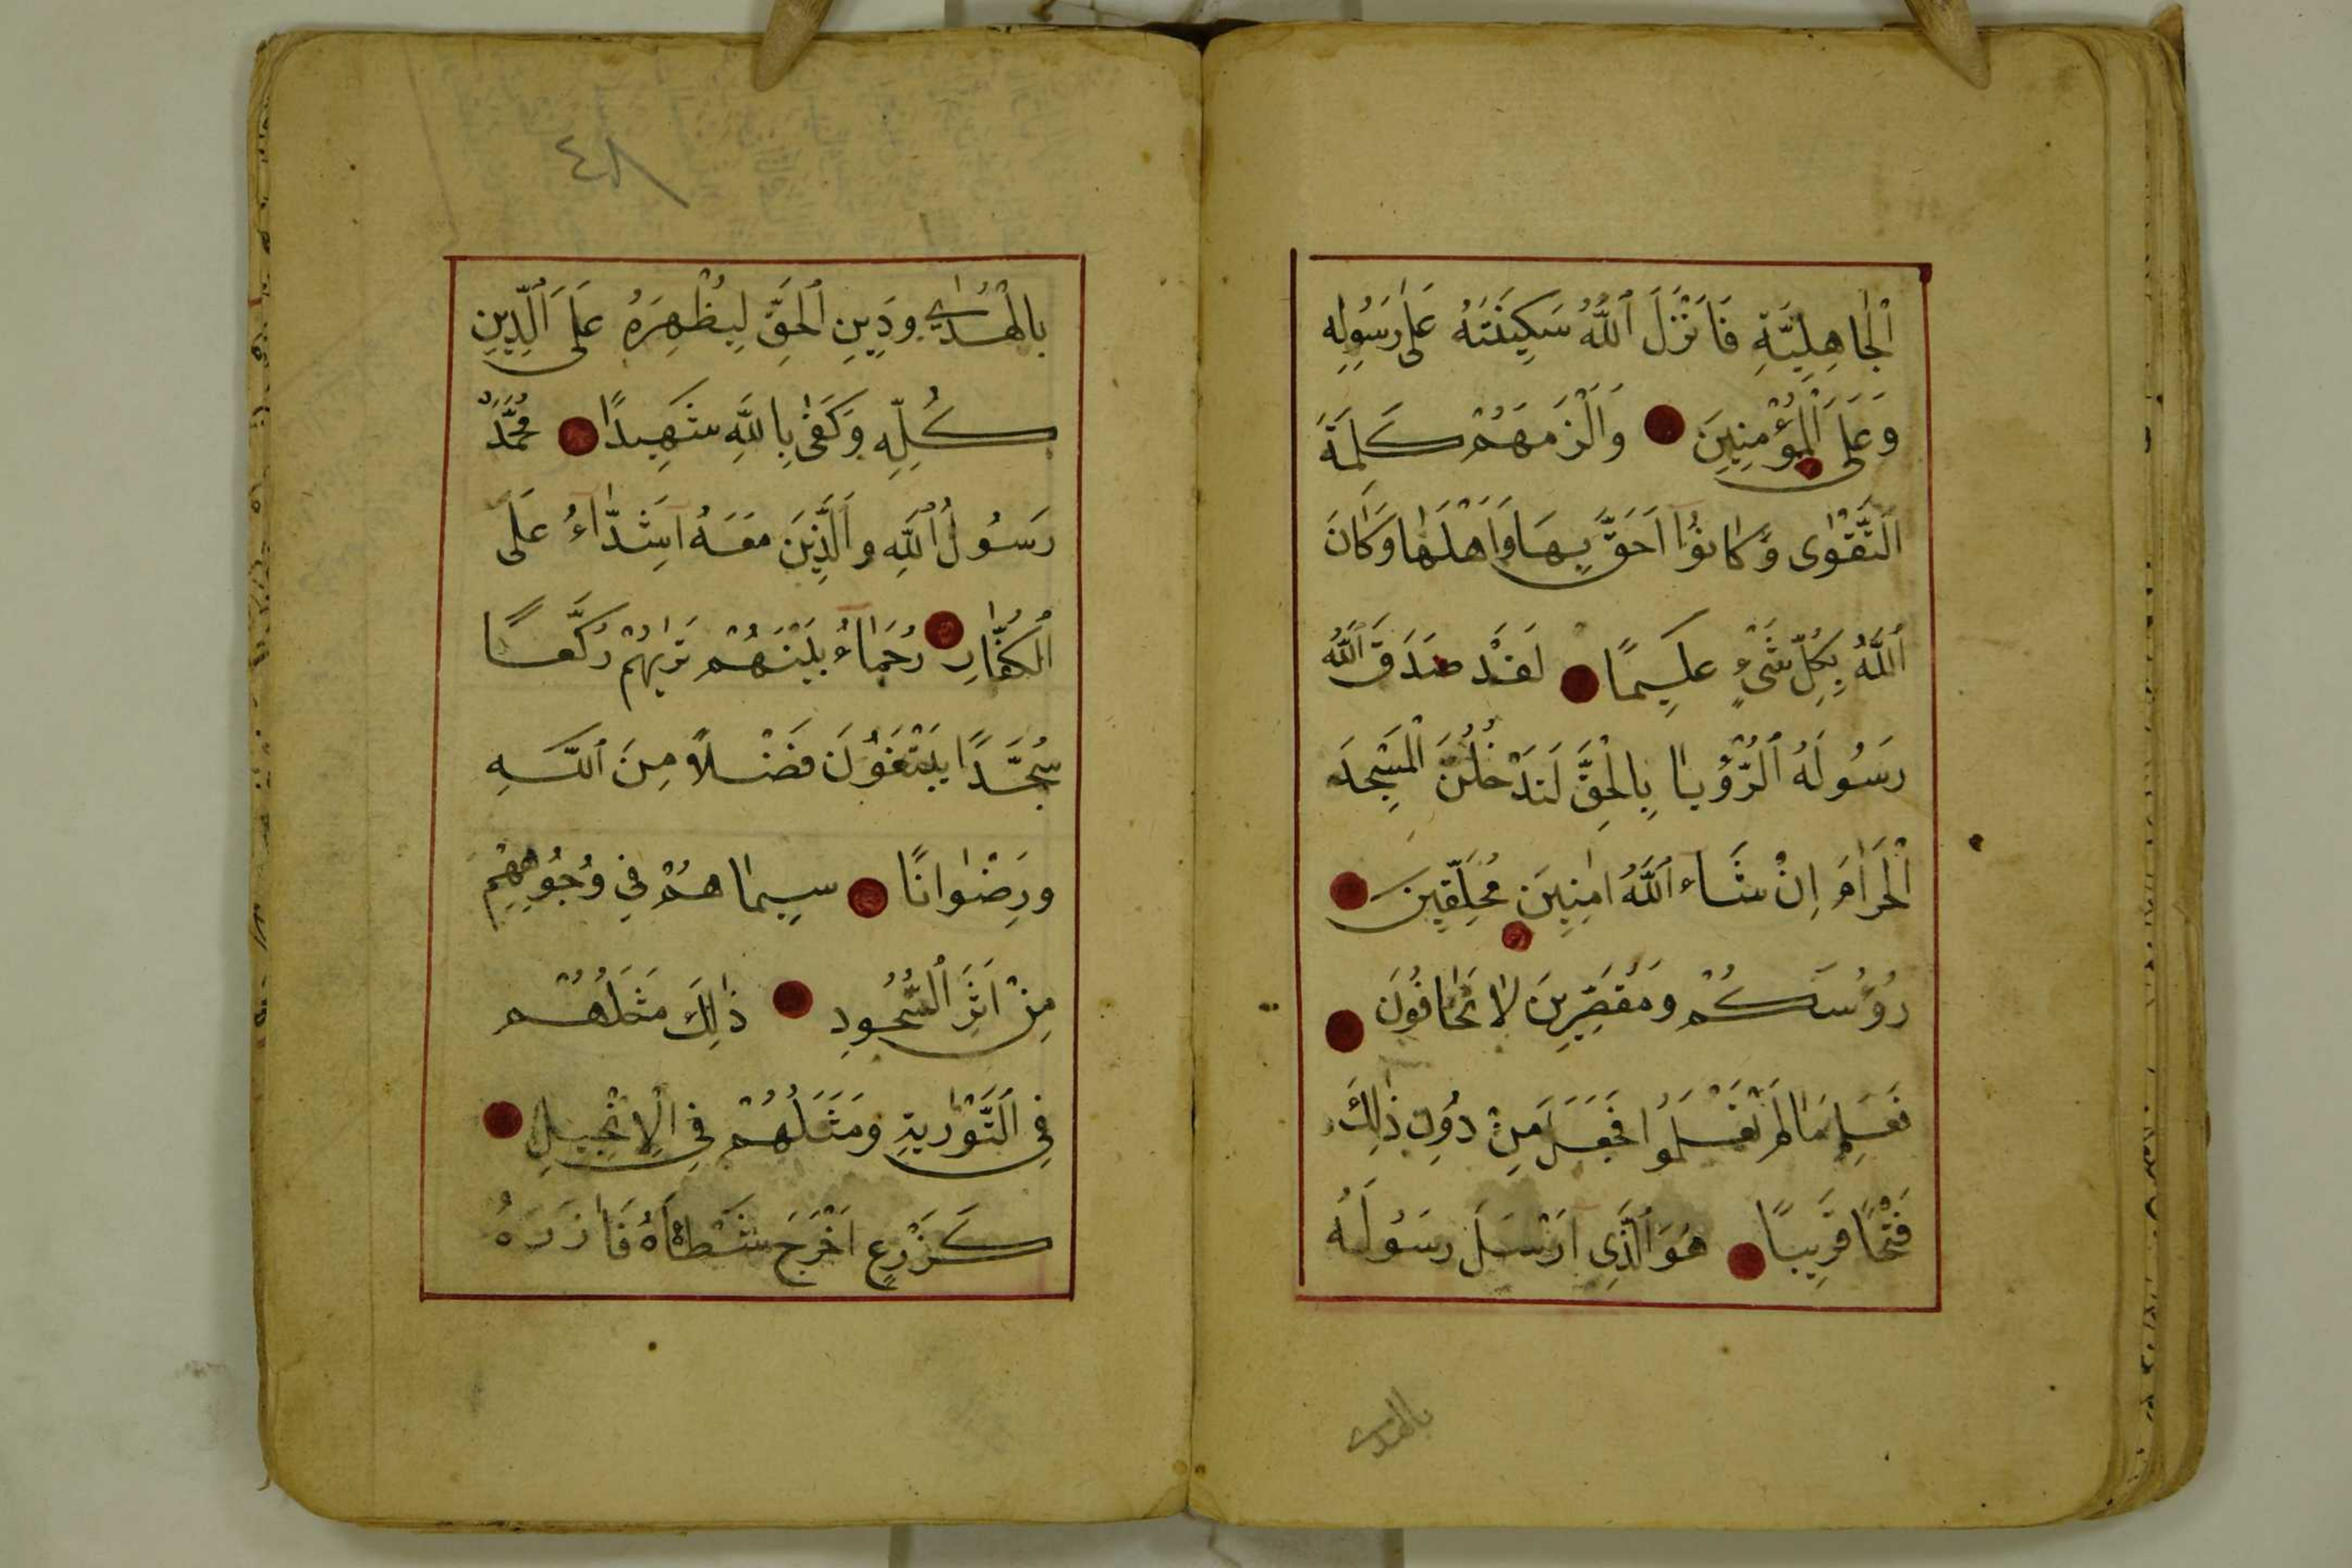 اَلْجَاهِلِيَّةِ فَاَنْزَلَ ٱللَّهُ سَكِينَتَهُ عَلٰى رَسُولِهِ
وَعَلَى ٱلْمُؤْمِنِينَ وَاَلْزَمَهُمْ كَلِمَةَ
اَلتَّقْوٰى وَكَانُوْا اَحَقَّ بِهَا وَاَهْلَهَا وَكَانَ
ٱللَّهُ بِكُلِّ شَيْءٍ عَلِيمًا لَقَدْ صَدَقَ ٱللَّهُ
رَسُولَهُ ٱلرُّؤْيَا بِالْحَقِّ لَتَدْخُلُنَّ الْمَسْجِدَ
الْحَرَامَ اِنْ شَاءَ ٱللَّهُ اٰمِنِينَ مُحَلِّقِينَ
رُؤُسَكُمْ وَمُقَصِّرِينَ لَا تَخَافُونَ
فَعَلِمَ مَا لَمْ تَعْلَمُوا فَجَعَلَ مِنْ دُونِ ذٰلِكَ
فَتْحًا قَرِيبًا هُوَ ٱلَّذِى اَرْسَلَ رَسُولَهُ
بالهدى
٤٨
بِالْهُدٰى وَدِينِ ٱلْحَقِّ لِيُظْهِرَهُ عَلَى ٱلدِّينِ
كُلِّهِ وَكَفٰى بِاللَّهِ شَهِيدًا مُحَمَّدٌ
رَسُولُ ٱللَّهِ وَالَّذِينَ مَعَهُ اَشِدَّاءُ عَلَى
ٱلْكُفَّارِ رُحَمَاءُ بَيْنَهُمْ تَرٰيهُمْ رُكَّعًا
سُجَّدًا يَبْتَغُونَ فَضْلًا مِنَ ٱللَّهِ
وَرِضْوَانًا سِيمَاهُمْ فِي وُجُوهِهِمْ
مِنْ اَثَرِ ٱلسُّجُودِ ذٰلِكَ مَثَلُهُمْ
فِي اَلتَّوْرٰيةِ وَمَثَلُهُمْ فِي الْاِنْجِيلِ
كَزَرْعٍ اَخْرَجَ شَطْاَهُ فَاٰزَرَهُ